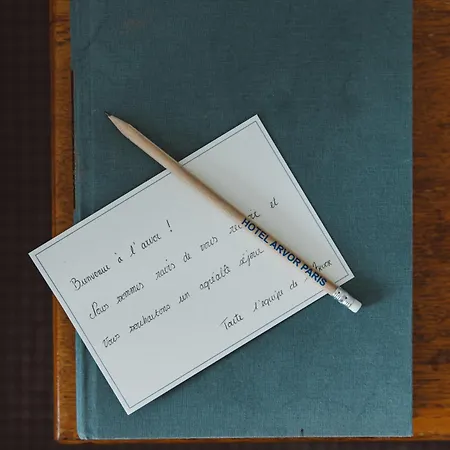 Bienvenue à l'arvor !
Nous sommes ravis de vous recevoir et
Vous souhaitons un agréable séjour
Toute l'équipe de l'Arvor
HOTEL ARVOR PARIS